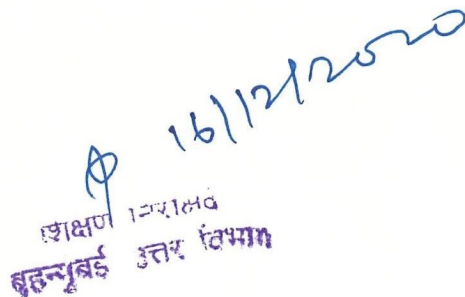 16/12/2020
शिक्षण निरीक्षक
बृहन्मुंबई उत्तर विभाग